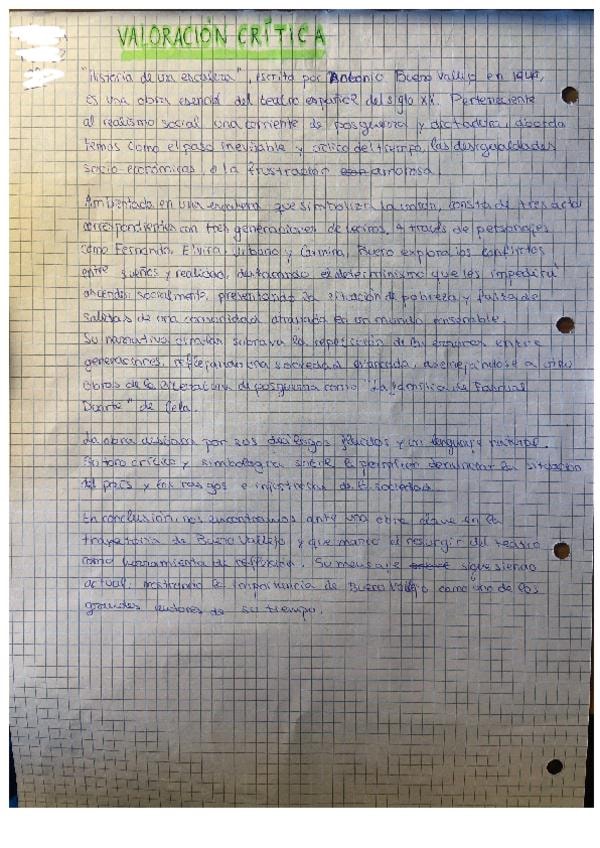 VALORACIÓN CRÍTICA
"Historia de una escalera", escrita por Antonio Buero Vallejo en
es una obra esencial del teatro español del siglo XX. Perteneciente
al realismo social una corriente de posguerra y dictadura, aborda
temas como el paso inevitable y cíclico del tiempo, las desigualdades
socio-económicas o la frustración amorosa.
Ambientada en una escalera que simboliza la consta de tres actos
correspondientes con tres generaciones de vecinos. A través de personajes
como Fernando, Elvira, Urbano y Carmina, Buero explora los conflictos
entre sueños y realidad, destacando el determinismo que les impedirá
ascender socialmente, presentando la situación de pobreza y falta de
salidas de una comunidad atrapada en un mundo
Su narrativa subraya la repetición de los errores entre
generaciones, reflejando una sociedad estancada, asemejándose a otras
obras de la literatura de posguerra como "La familia de Pascual
Duarte" de Cela.
La obra destaca por sus diálogos fluidos y un lenguaje natural.
Su tono crítico y simbología le permiten denunciar la situación
del país y los rasgos e injusticias de la sociedad.
En conclusión, nos encontramos ante una obra clave en la
trayectoria de Buero Vallejo y que marcó el resurgir del teatro
como herramienta de reflexión. Su mensaje sigue siendo
actual, mostrando la importancia de Buero Vallejo como uno de los
grandes autores de su tiempo.